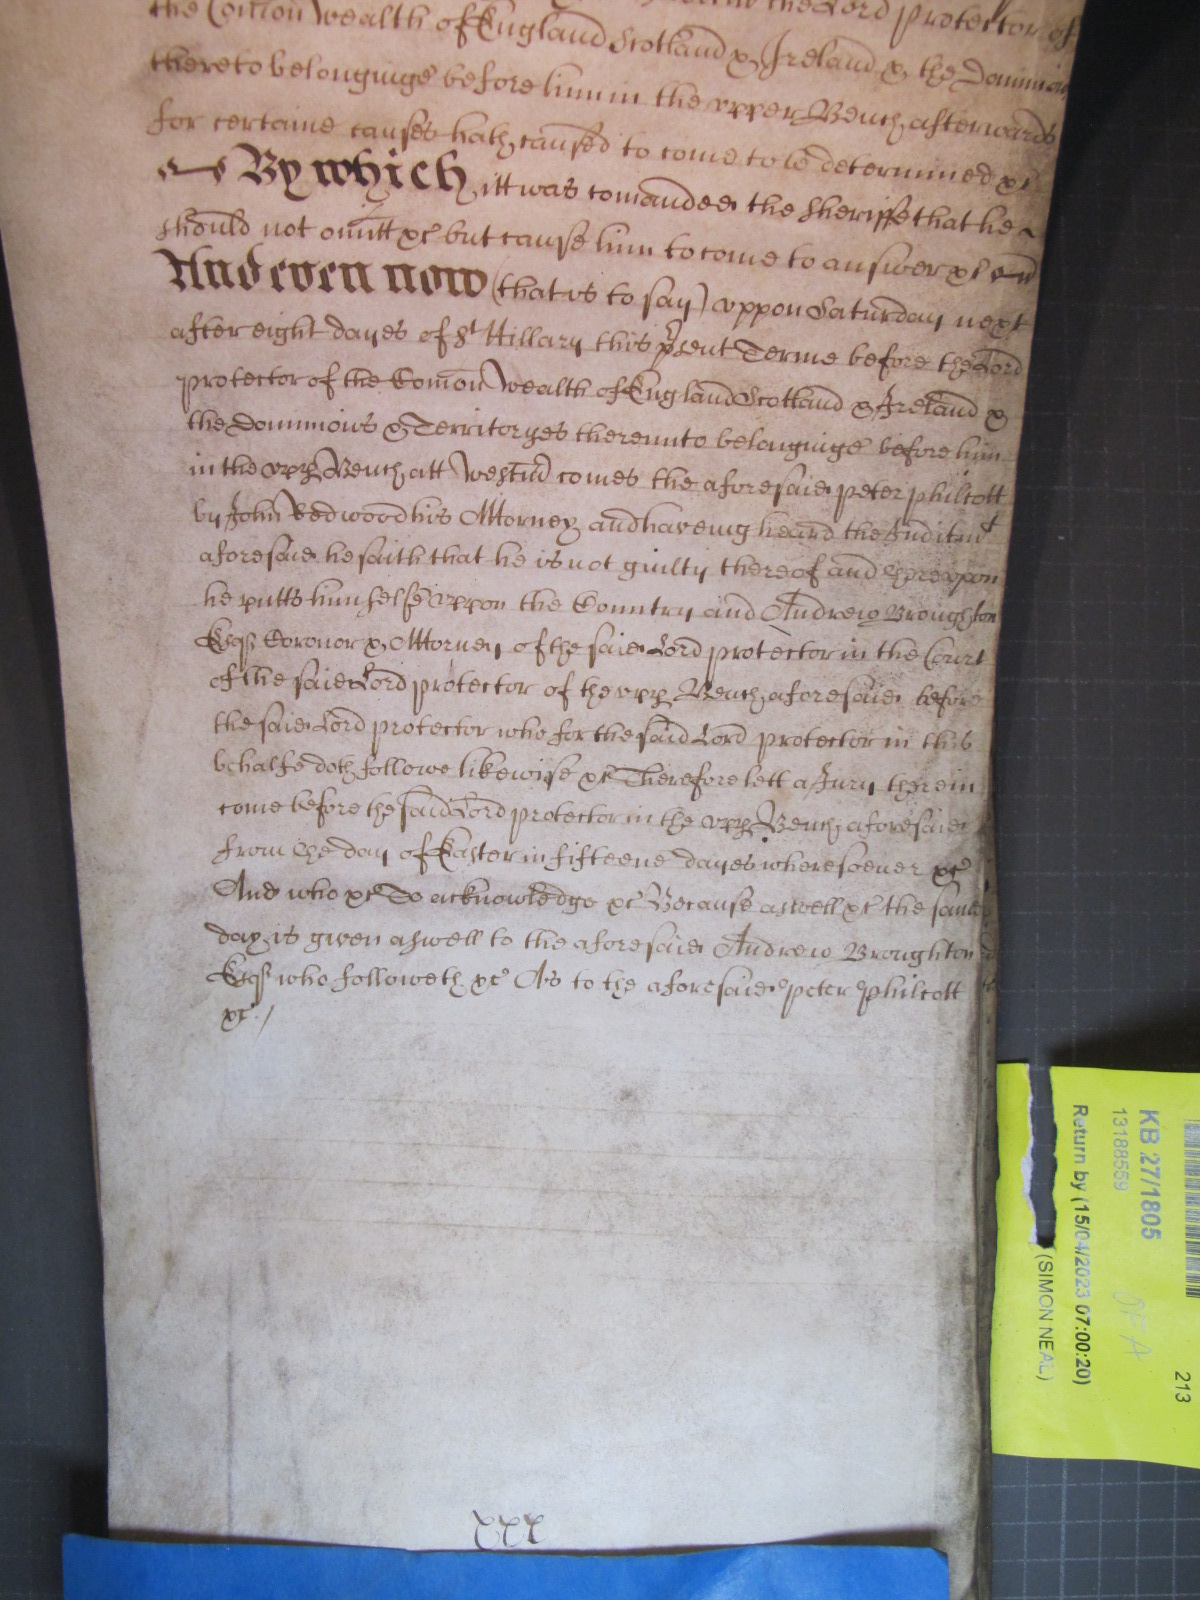 the Lord protector of
the Comon Wealth of England Scotland & Ireland & the Dominions
thereto belonginge before him in the vpper Bench afterwards
for certaine causes hath caused to come to be determined &c
By which itt was comanded the Sheriffe that he
should not omitt &c but cause him to come to answer &c And
And even now (that is to say) vppon Saturday next
after eight dayes of St Hillary this p̱sent Terme before the Lord
protector of the Comon Wealth of England Scotland & Ireland &
the Dominions & Territoryes thereunto belonginge before him
in the vpp Bench att Westm̃ comes the aforesaid peter philcott
by John Redwood his Attorney and haveing heard the Inditmt
aforesaid he saith that he is not guilty thereof and therevpon
he putts himselfe vppon the Country and Andrew Broughton
Esq Coronor & Attorney of the said Lord protector in the Court
of the said Lord protector of the vpp Bench aforesaid before
the said Lord protector who for the said Lord protector in this
behalfe doth followe likewise &c Therefore lett a Jury therein
come before the said Lord protector in the vpp Bench aforesaid
from the day of Easter in fifteene dayes wheresoever &c
And who &c To acknowledge &c Because aswell &c the same
day is given aswell to the aforesaid Andrew Broughton
Esq who followeth &c As to the aforesaid peter philcott
&c /
xxx
213
KB 27/1805
DFA
13188559
Return by (15/04/2023 07:00:20)
(SIMON NEAL)